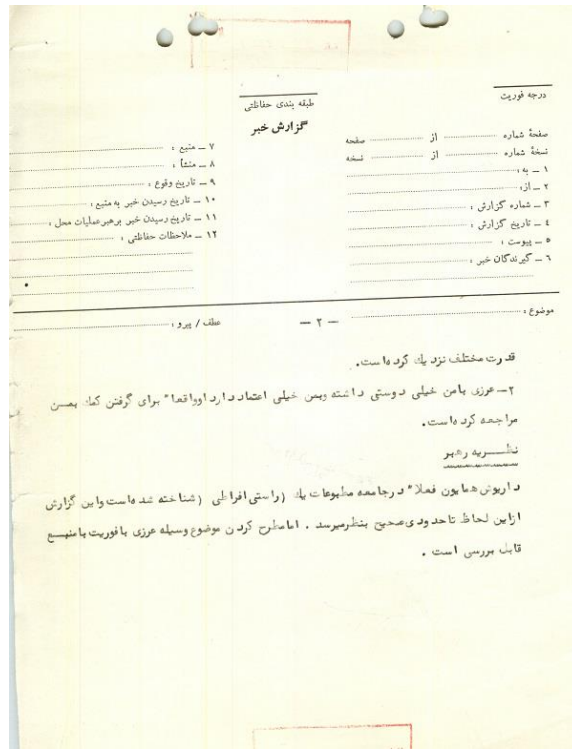 درجه فوریت
طبقه بندی حفاظتی
گزارش خبر
صفحهٔ شماره از صفحه
نسخهٔ شماره از نسخه
۱ ــ به :
۲ ــ از :
۳ ــ شماره گزارش :
۴ ــ تاریخ گزارش :
۵ ــ پیوست :
۶ ــ گیرندگان خبر :
۷ ــ منبع :
۸ ــ منشأ :
۹ ــ تاریخ وقوع :
۱۰ ــ تاریخ رسیدن خبر به منبع :
۱۱ ــ تاریخ رسیدن خبر برهبر عملیات محل :
۱۲ ــ ملاحظات حفاظتی :
موضوع :
ــ ۲ ــ
عطف / پیرو :
قدرت مختلف نزدیك کرده است.
۲ــ عرزی بامن خیلی دوستی داشته وبمن خیلی اعتماد دارد اوواقعا" برای گرفتن کمك بمسن
مراجعه کرده است.
نظــریه رهبر
داریوش همایون فعلا" درجامعه مطبوعات یك (راستی افراطی (شناخته شده است واین گزارش
ازاین لحاظ تاحدودی صحیح بنظرمیرسد . امامطرح کردن موضوع وسیله عرزی بافوریت بامنبــع
قابل بررسی است .